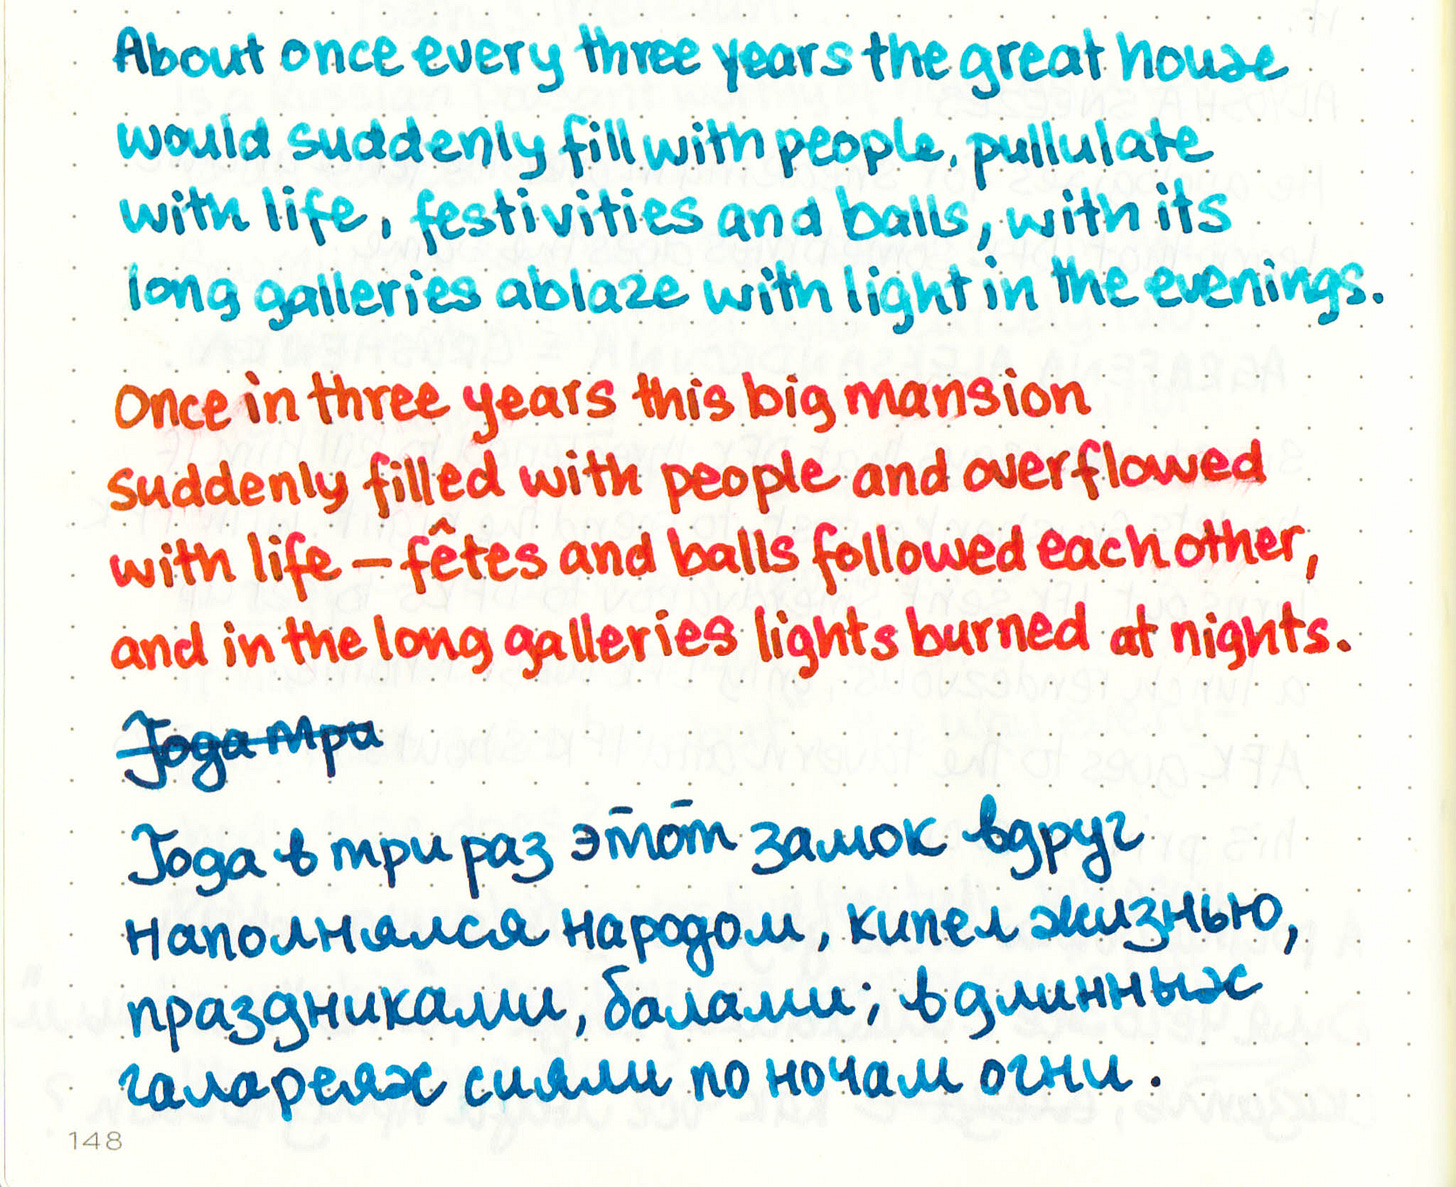 About once every three years the great house
would suddenly fill with people, pullulate
with life, festivities and balls, with its
long galleries ablaze with light in the evenings.
Once in three years this big mansion
suddenly filled with people and overflowed
with life – fêtes and balls followed each other,
and in the long galleries lights burned at nights.
Года три
Года в три раз этот замок вдруг
наполнялся народом, кипел жизнью,
праздниками, балами; в длинных
галареях сияли по ночам огни.
148